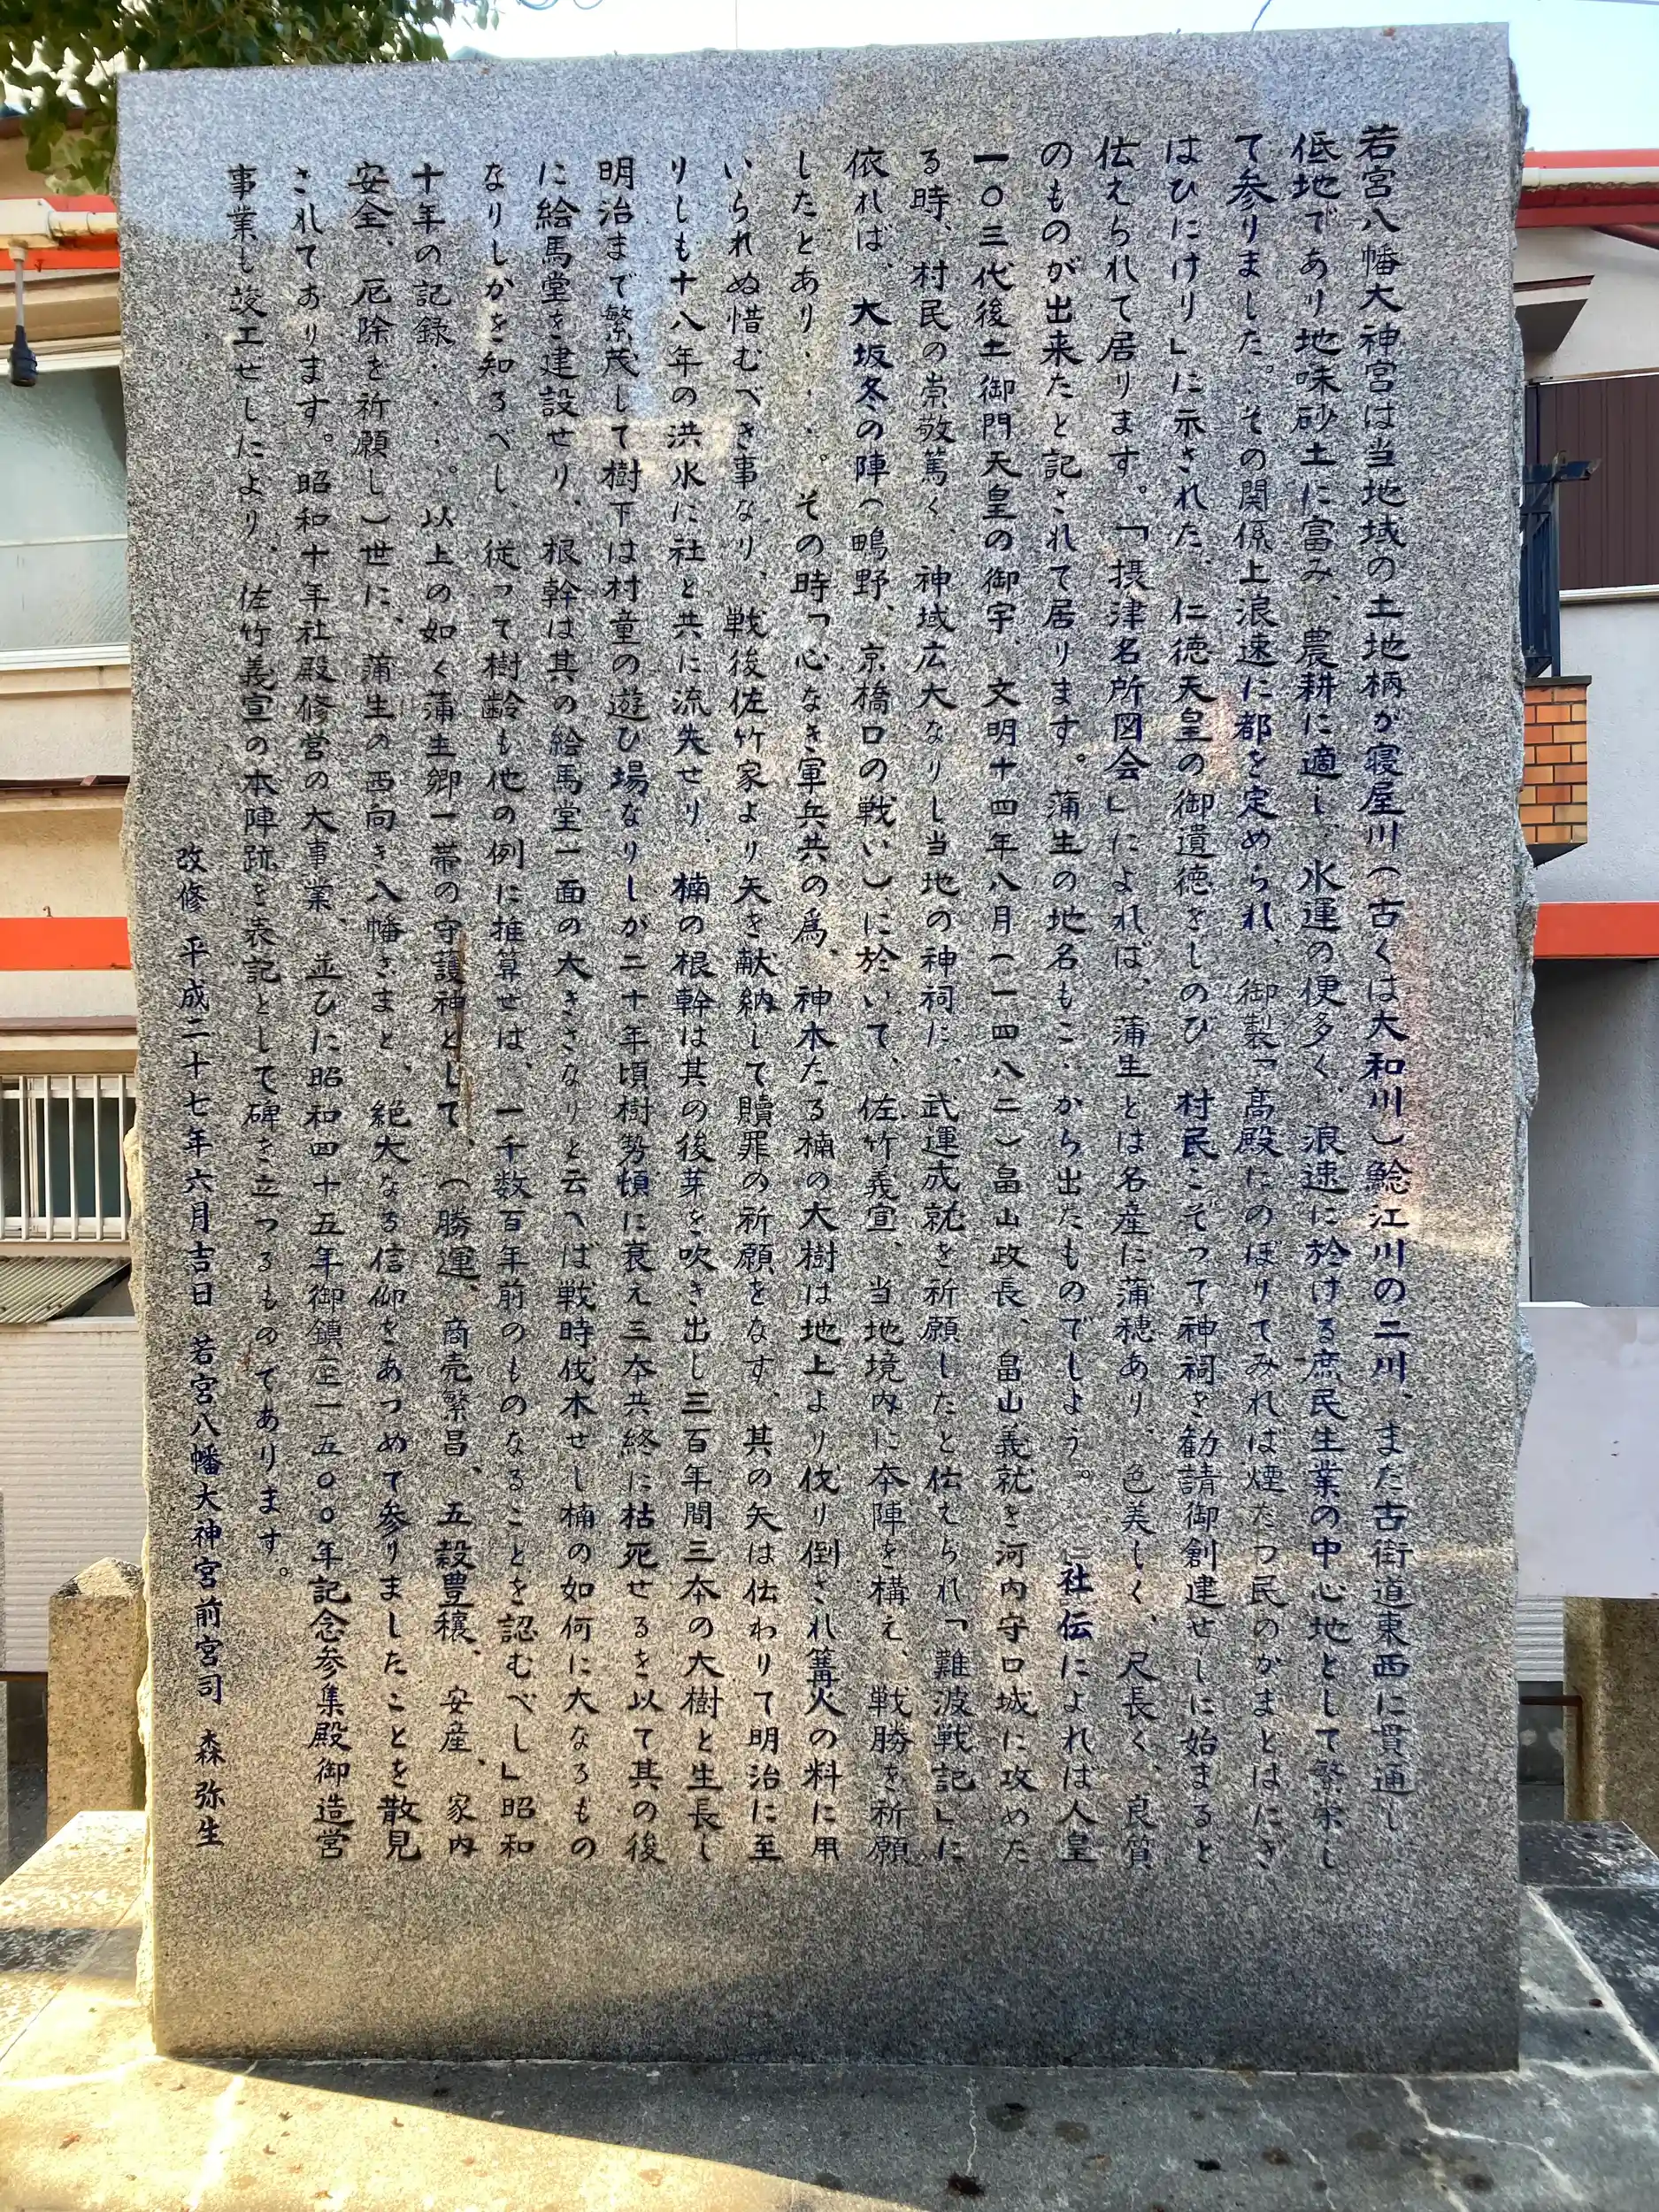 若宮八幡大神宮は当地域の土地柄が寝屋川(古くは大和川)鯰江川の二川、また古街道東西に貫通し
低地であり地味砂土に富み、農耕に適し、水運の便多く、浪速に於ける庶民生業の中心地として繁栄し
て参りました。その関係上浪速に都を定められ、御製「高殿にのぼりてみれば煙たつ民のかまとはにぎ
はひにけり」に示された、仁徳天皇の御遺徳をしのび、村民こぞって神祠を勧請御創建せしに始まると
伝えられて居ります。「摂津名所図会」によれば、蒲生とは名産に蒲穂あり、色美しく、尺長く、良質
のものが出来たと記されて居ります。蒲生の地名もこゝから出たものでしよう。社伝によれば人皇
一〇三代後土御門天皇の御宇、文明十四年八月(一四八二)畠山政長、畠山義就を河内守口城に攻めた
る時、村民の崇敬篤く、神域広大なりし当地の神祠に、武運成就を祈願したと伝えられ「難波戦記」に
依れば、大坂冬の陣(鴫野、京橋口の戦い)に於いて、佐竹義宣、当地境内に本陣を構え、戦勝を祈願
したとあり・・・・。その時「心なき軍兵共の為、神木たる楠の大樹は地上より伐り倒され篝火の料に用
いられぬ惜むべき事なり、戦後佐竹家より矢を献納して贖罪の祈願をなす、其の矢は伝わりて明治に至
りしも十八年の洪水に社と共に流失せり、楠の根幹は其の後芽を吹き出し三百年間三本の大樹と生長し
明治まで繁茂して樹下は村童の遊び場なりしが二十年頃樹勢頓に衰え三本共終に枯死せるを以て其の後
に絵馬堂を建設せり、根幹は其の絵馬堂一面の大きさなりと云へば戦時伐木せし楠の如何に大なるもの
なりしかを知るべし、従って樹齢も他の例に推算せば、一千数百年前のものなることを認むべし」昭和
十年の記録・・・・。以上の如く蒲生郷一帯の守護神として、(勝運、商売繁昌、五穀豊穣、安産、家内
安全、厄除を祈願し)世に、蒲生の西向き八幡さまと、絶大なる信仰をあつめて参りましたことを散見
されております。昭和十年社殿修営の大事業、並びに昭和四十五年御鎮座一五〇〇年記念参集殿御造営
事業も竣工せしにより、佐竹義宣の本陣跡を表記として碑を立つるものであります。
改修 平成二十七年六月吉日 若宮八幡大神宮前宮司 森 弥生